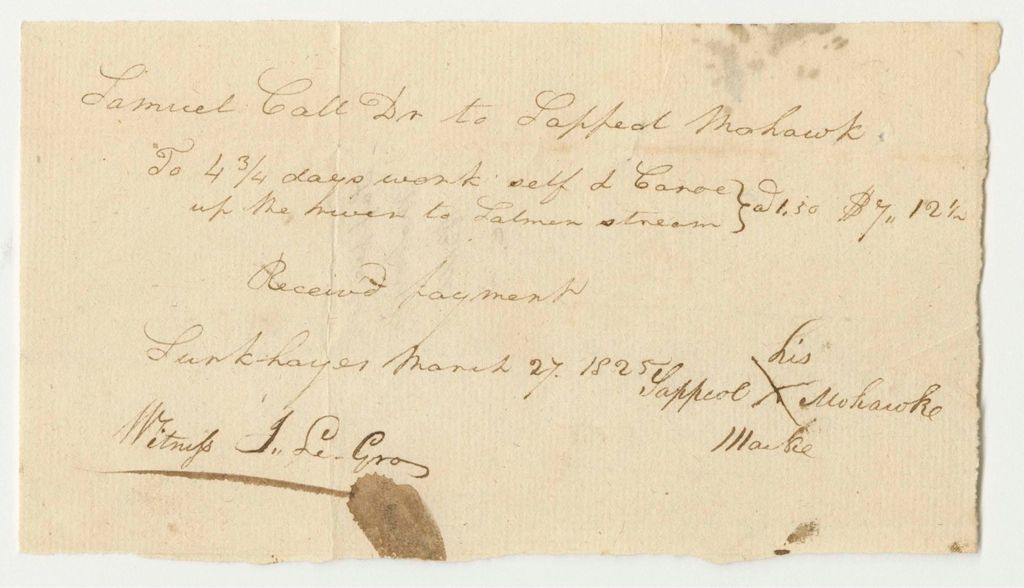 Samuel Call Dr to Sappeal Mohawk
To 4 3/4 days work self & Canoe } @ 1.50 $7,, 12 1/2
up the river to Salmon stream
Receiv'd payment
Sunkhayes March 27. 1825
his
Sappeol X Mohawke
Marke
Witness J,, Le-Gro